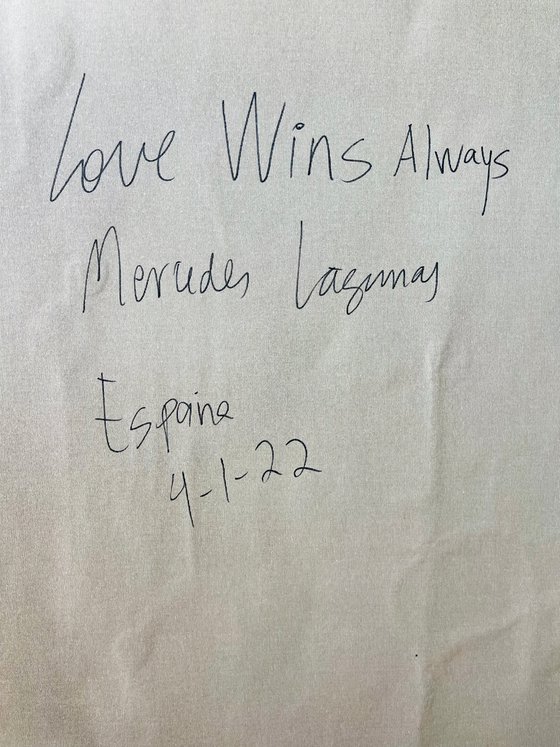 Love Wins Always
Mercedes Lagunas
España
4-1-22